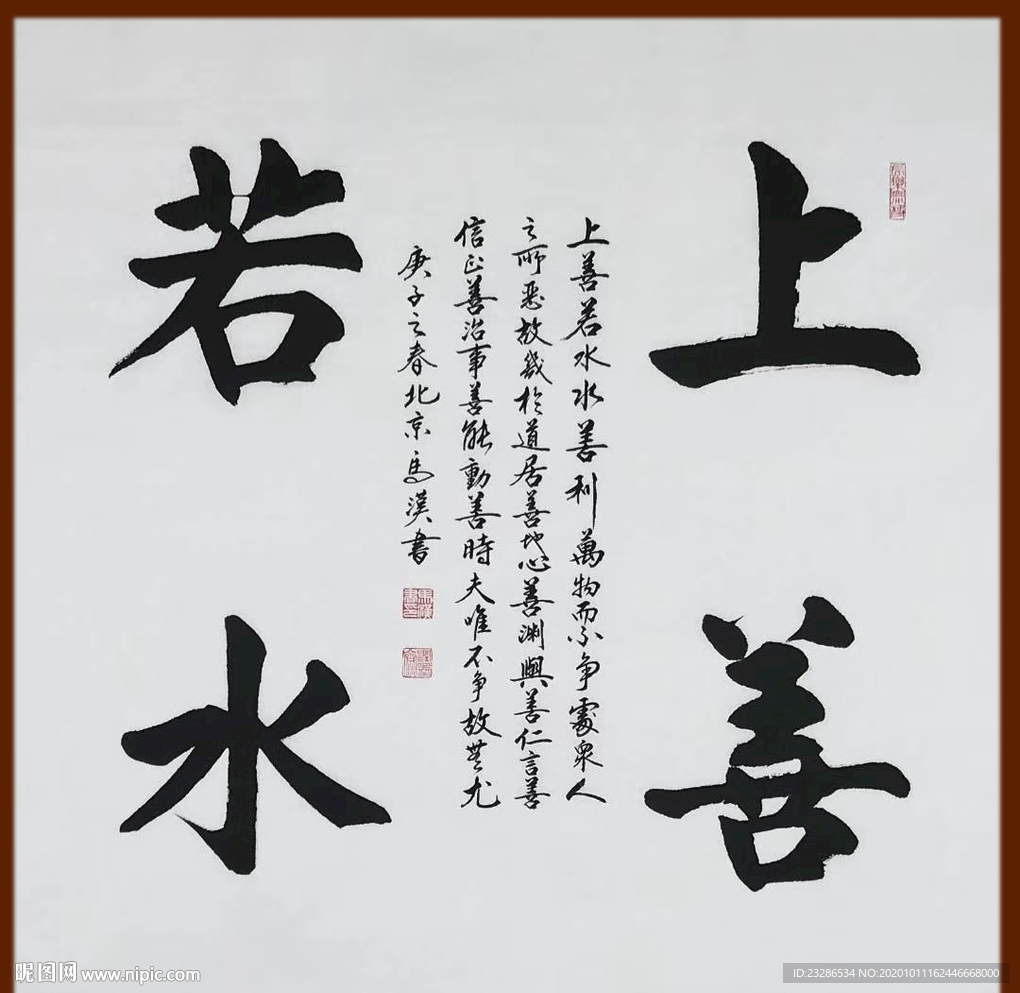 上善
若水
上善若水水善利萬物而不争處衆人
之所惡故幾於道居善地心善渊與善仁言善
信正善治事善能動善時夫唯不争故無尤
庚子之春北京馬漢書
昵图网 www.nipic.com
ID:23286534 NO:20201011162446668000